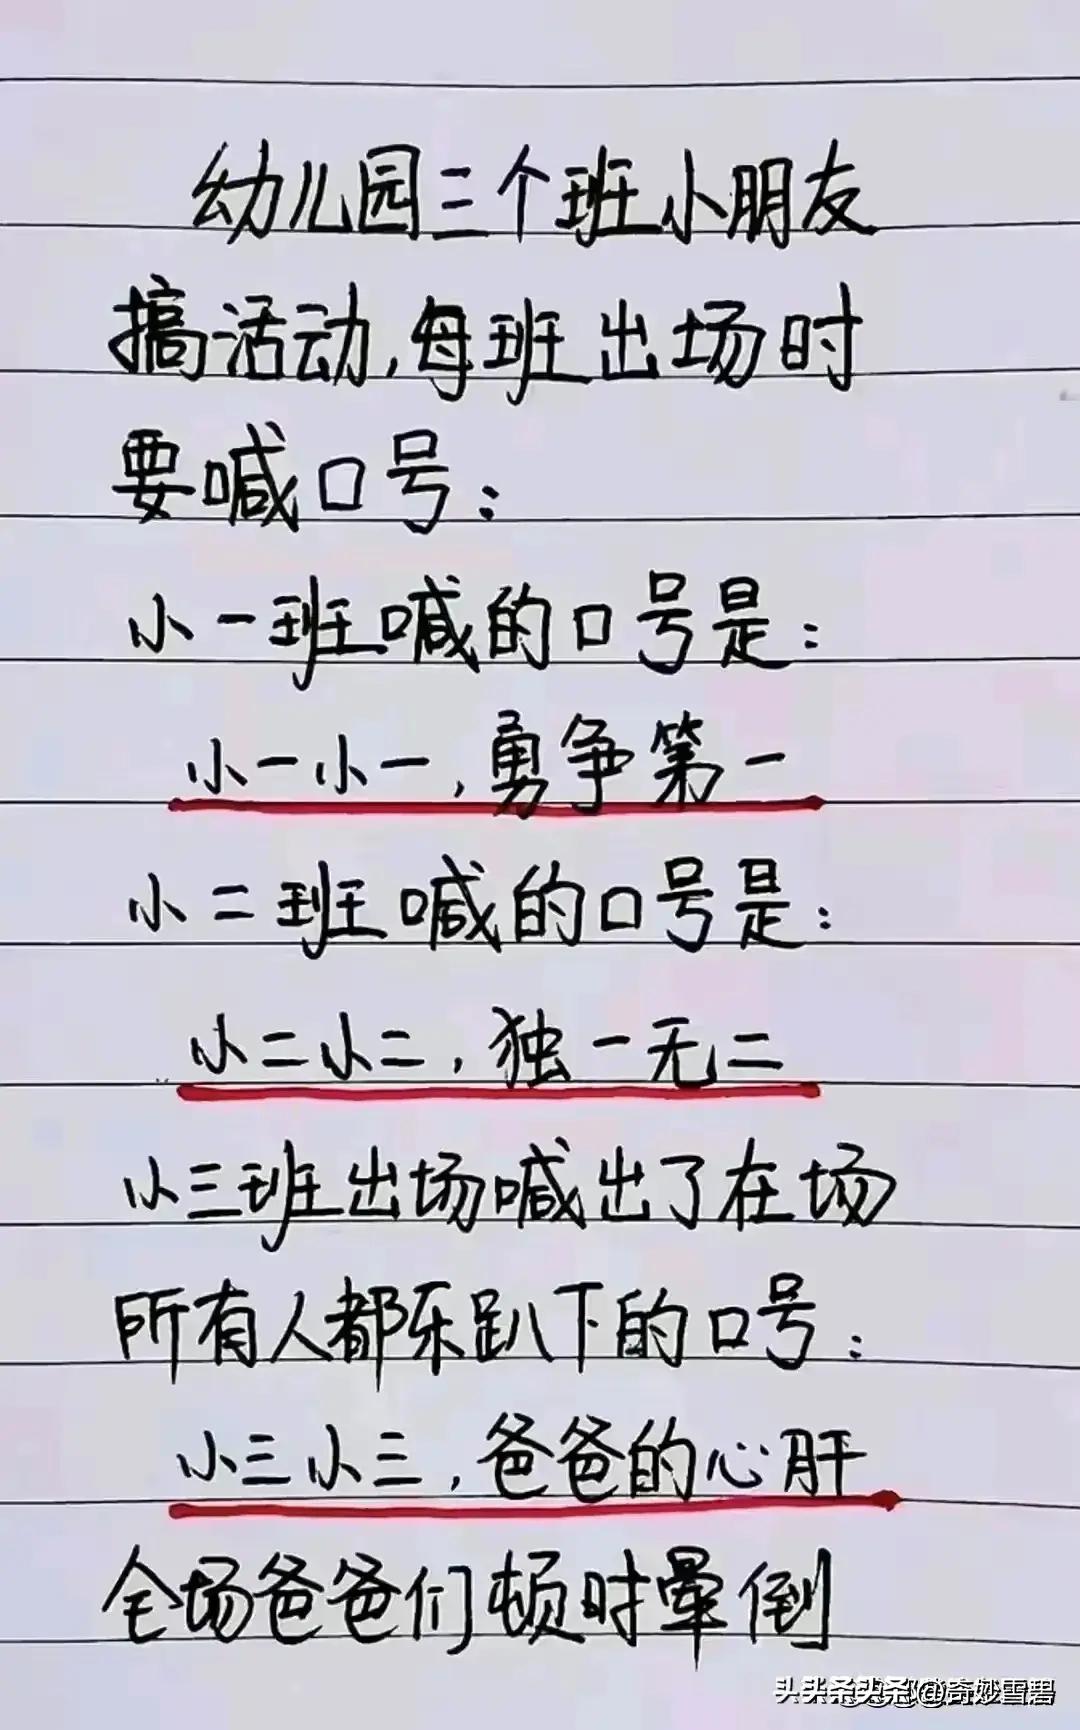 幼儿园三个班小朋友
搞活动,每班出场时
要喊口号:
小一班喊的口号是:
小一小一,勇争第一
小二班喊的口号是:
小二小二,独一无二
小三班出场喊出了在场
所有人都乐趴下的口号:
小三小三,爸爸的心肝
全场爸爸们顿时晕倒
头条 @奇妙雪碧